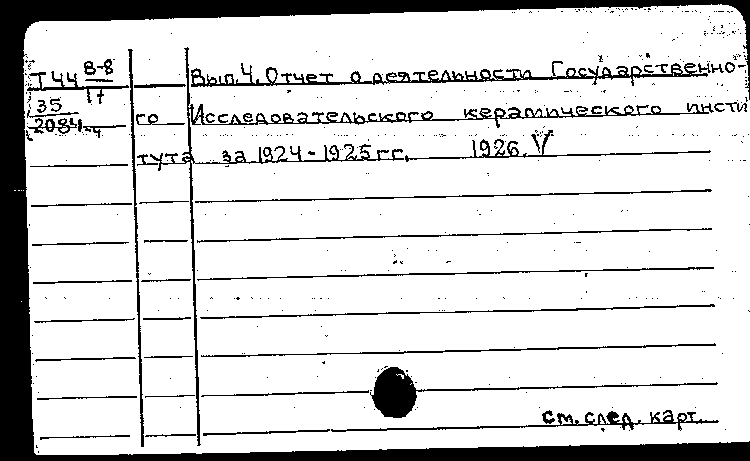 Т44 В-8 Вып.4. Отчет о деятельности Государственно-
17
35 го Исследовательского керамического инсти
2084-4
тута за 1924-1925 гг. 1926. V
см. след. карт.